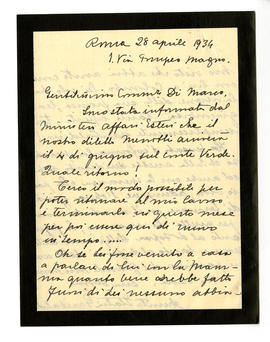 Roma 28 aprile 1934
1. Via Pompeo Magno.
Gentilissimo Comm. Di Marco,
Sono stata informata dal
Ministero Affari Esteri che il
nostro diletto Menotti arriverà
il 4 di giugno sul Conte Verde.
Quale ritorno!
Cerco il modo possibile per
poter ritornare al mio lavoro
e terminarlo in questo mese
per poi essere qui di nuovo
in tempo....
Oh se Lei fosse venuto a casa
a parlare di lui con la Mam-
ma quanto bene avrebbe fatto
Fuori di Lei nessuno abbia-